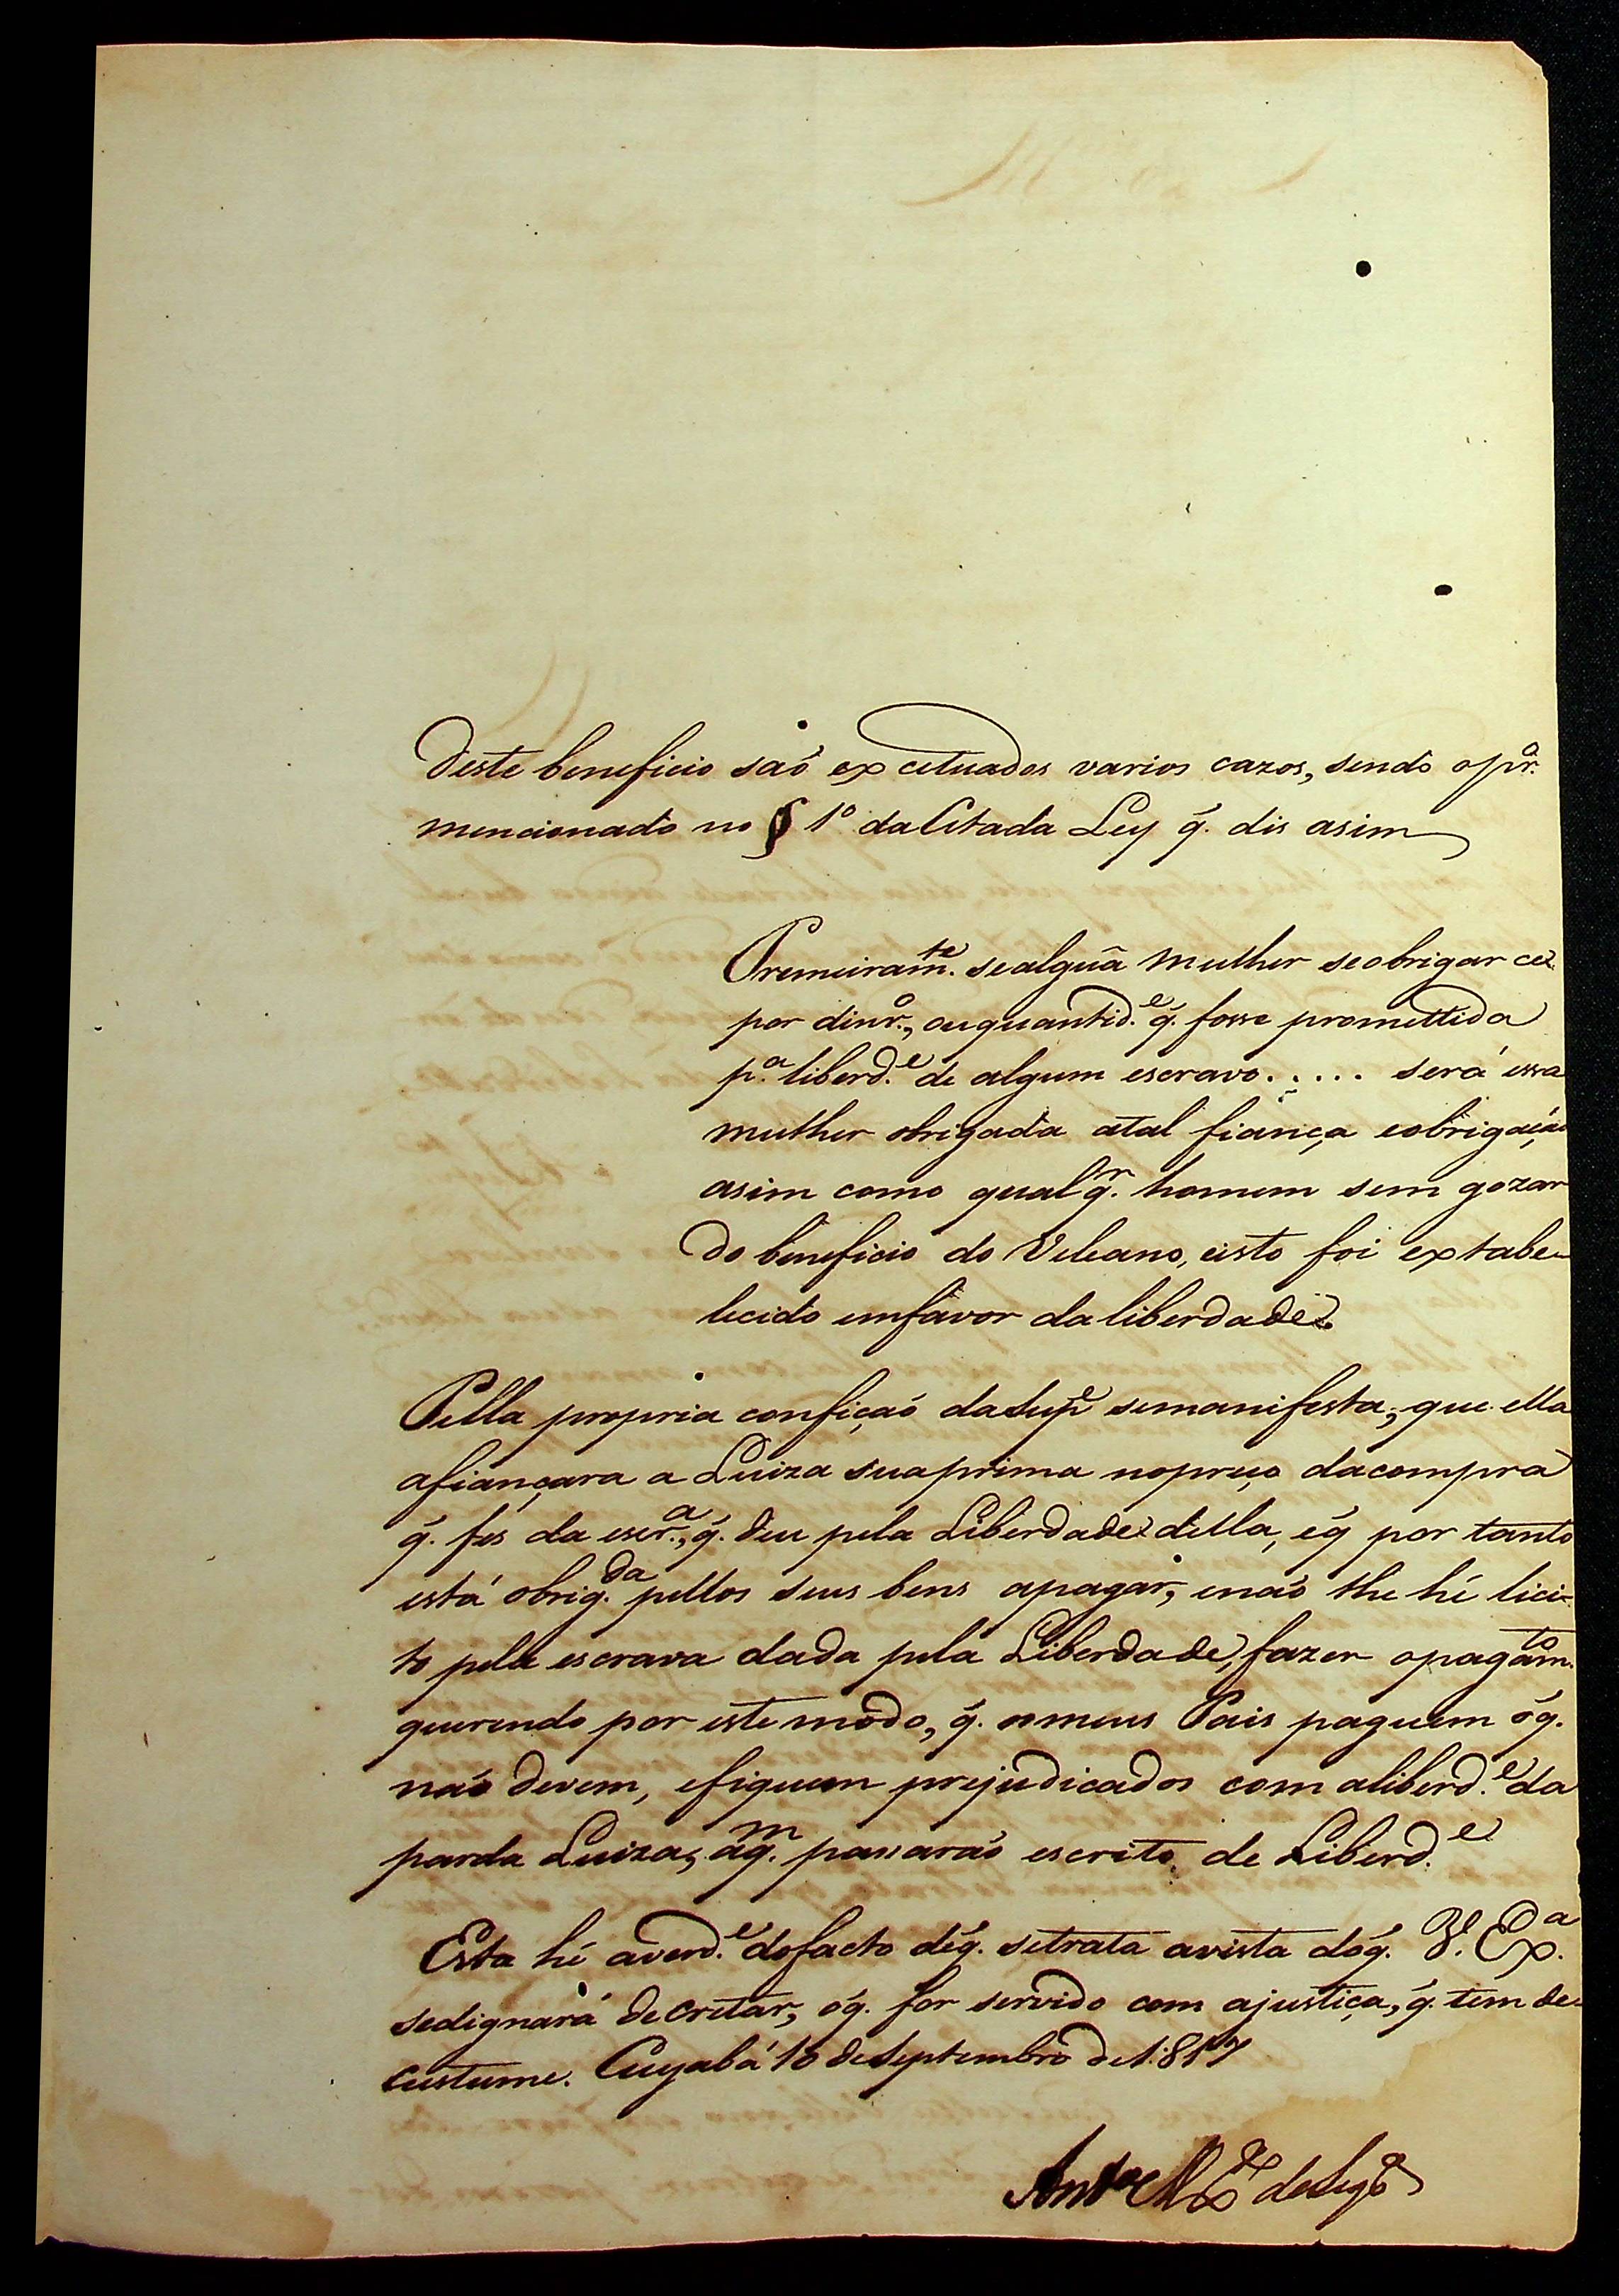 Deste beneficio saõ excetuados varios cazos, sendo o pr.º
mencionado no § 1º da Citada Ley q̃. dis asim
Premeiram.te se alguã mulher se obrigar
por dinr.º, ou quantid.e q̃. fosse promettida
p.a liberd.e de algum escravo..... será essa
mulher obrigada atal fiança eobrigação
asim como qualq̃.r homem sem gozar
do beneficio do Veleano, eisto foi extabe-
lecido emfavor daliberdade.
Pella propria confição daSup.e semanifesta, que ella
afiançara a Luiza suaprima nopreço dacompra
q̃. fes da escr.a, q̃. deu pela Liberdade della, eq̃ por tanto
está obrig.da pellos seus bens apagar, enaõ lhe hé lici-
to pela escrava dada pela Liberdade, fazer opagam.to
querendo por este modo, q̃. os meus Pais paguem oq̃.
naõ devem, efiquem prejudicados com aliberd.e da
parda Luiza, aq̃.m passaraõ escrito de Liberd.e
Esta hé averd.e dofacto deq̃. setrata avista doq̃. V. Ex.a
sedignará decretar, oq̃. for servido com ajustiça, q̃. tem de
custume. Cuyabá 10 deSeptembro de 1817
Ant.º